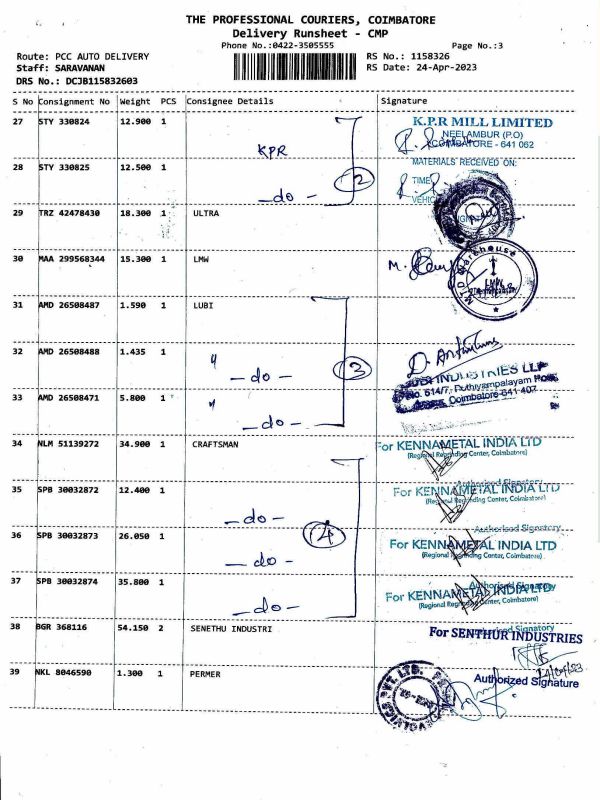 THE PROFESSIONAL COURIERS, COIMBATORE
Delivery Runsheet - CMP
Phone No.:0422-3505555 Page No.:3
Route: PCC AUTO DELIVERY RS No.: 1158326
Staff: SARAVANAN RS Date: 24-Apr-2023
DRS No.: DCJB115832603
S No Consignment No Weight PCS Consignee Details Signature
27 STY 330824 12.900 1 KPR
K.P.R MILL LIMITED
NEELAMBUR (P.O)
COIMBATORE - 641 062
28 STY 330825 12.500 1 -do- 2
MATERIALS RECEIVED ON:
TIME
29 TRZ 42478430 18.300 1 ULTRA
30 MAA 299568344 15.300 1 LMW
M.
Warehouse
31 AMD 26508487 1.590 1 LUBI
32 AMD 26508488 1.435 1 " -do- 3
33 AMD 26508471 5.800 1 " -do-
INDUSTRIES LLP
No. 614/7, Puthiyampalayam
Coimbatore-641 407
34 NLM 51139272 34.900 1 CRAFTSMAN
For KENNAMETAL INDIA LTD
(Regional Regrinding Center, Coimbatore)
Authorised Signatory
35 SPB 30032872 12.400 1 -do-
For KENNAMETAL INDIA LTD
(Regional Regrinding Center, Coimbatore)
Authorised Signatory
36 SPB 30032873 26.050 1 -do- 4
For KENNAMETAL INDIA LTD
(Regional Regrinding Center, Coimbatore)
Authorised Signatory
37 SPB 30032874 35.800 1 -do-
For KENNAMETAL INDIA LTD
(Regional Regrinding Center, Coimbatore)
Authorised Signatory
38 BGR 368116 54.150 2 SENETHU INDUSTRI
For SENTHUR INDUSTRIES
24/04/23
Authorized Signature
39 NKL 8046590 1.300 1 PERMER
PVT. LTD.